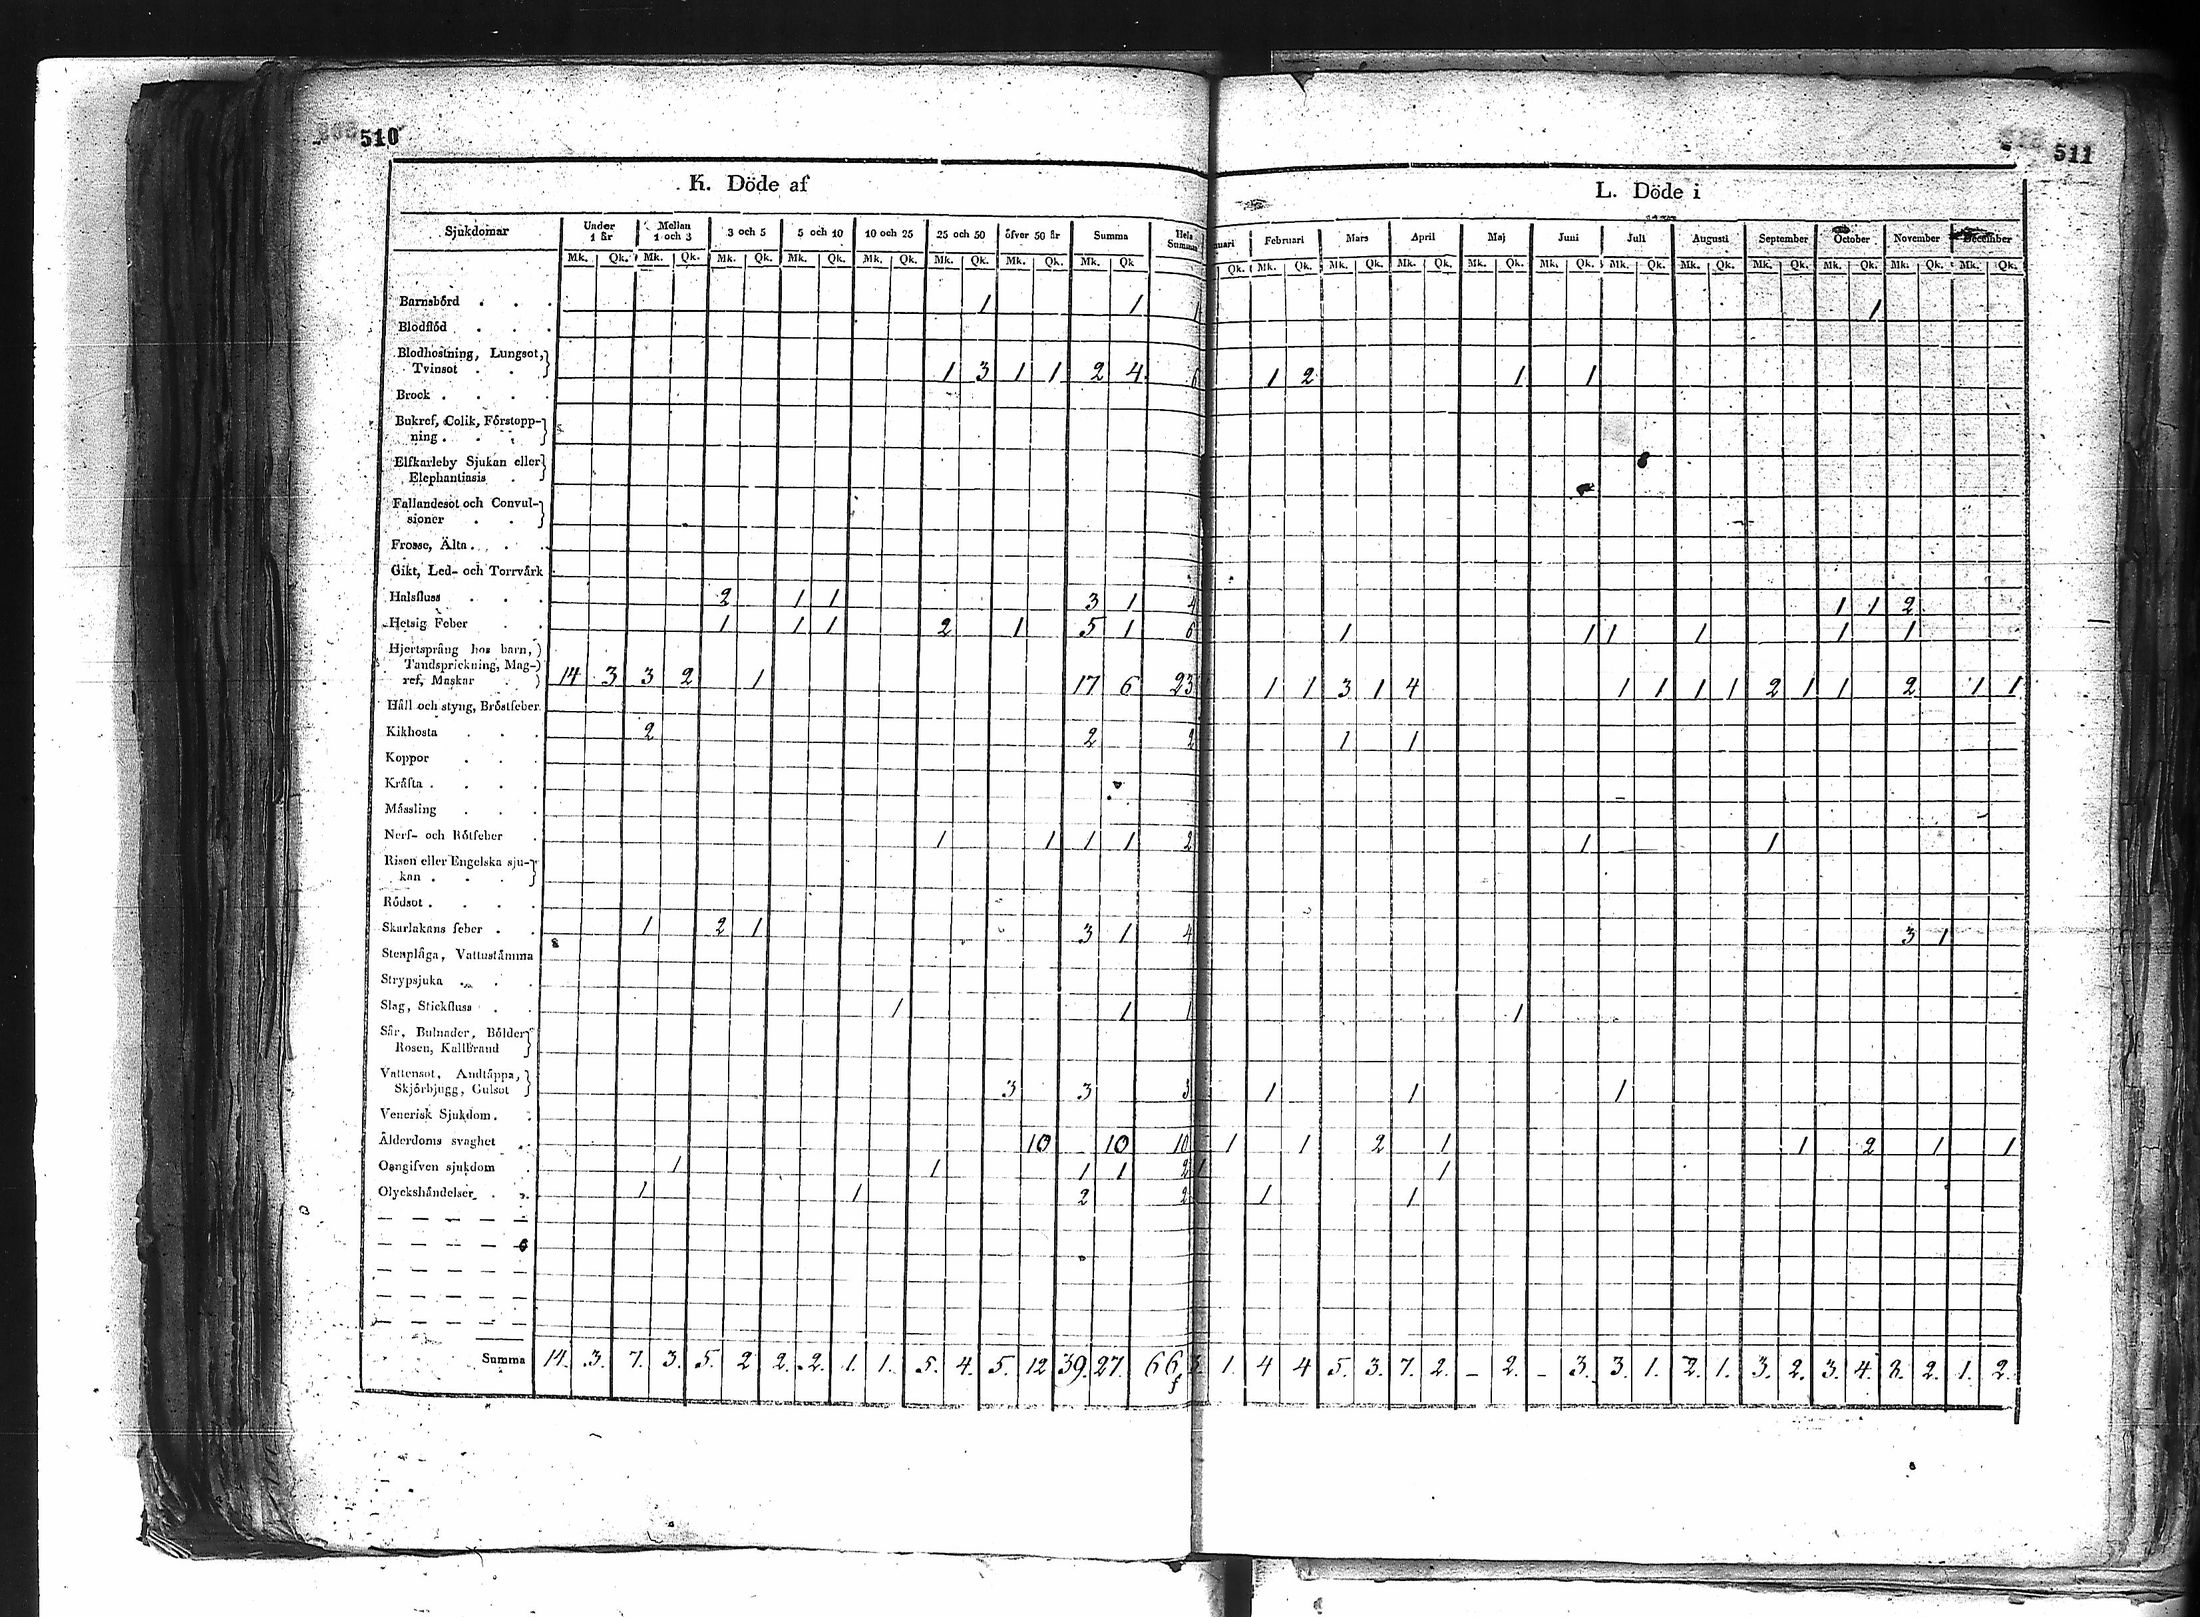 510
K. Döde af
Sjukdomar | Under 1 år | Mellan 1 och 3 | 3 och 5 | 5 och 10 | 10 och 25 | 25 och 50 | öfver 50 år | Summa | Hela Summan
Mk. Qk. Mk. Qk. Mk. Qk. Mk. Qk. Mk. Qk. Mk. Qk. Mk. Qk. Mk. Qk
Barnsbörd . . . 1 1 1
Blodflöd . . .
Blodhostning, Lungsot,
Tvinsot . . 1 3 1 1 2 4 6
Brock . . . .
Bukref, Colik, Förstopp-
ning . . .
Elfkarleby Sjukan eller
Elephantiasis .
Fallandesot och Convul-
sioner . .
Frosse, Älta . . .
Gikt, Led- och Torrvärk
Halsfluss . . . 2 1 1 3 1 4
Hetsig Feber . . 1 1 1 2 1 5 1 6
Hjertsprång hos barn,
Tandsprickning, Mag-
ref, Maskar . 14 3 3 2 1 17 6 23
Håll och styng, Bröstfeber
Kikhosta . . . 2 2 2
Koppor . . .
Kräfta . . . .
Mässling . . .
Nerf- och Rötfeber . 1 1 1 1 2
Risen eller Engelska sju-
kan . . .
Rödsot . . . .
Skarlakans feber . . 1 2 1 3 1 4
Stenplåga, Vattustämma
Strypsjuka . . .
Slag, Stickfluss . . 1 1 1
Sår, Bulnader, Bölder
Rosen, Kallbrand
Vattensot, Andtäppa,
Skjörbjugg, Gulsot 3 3 3
Venerisk Sjukdom . .
Ålderdoms svaghet . 10 10 10
Oangifven sjukdom . 1 1 1 1 2
Olyckshändelser . . 1 1 2 2
Summa 14. 3. 7. 3. 5. 2 2. 2. 1. 1. 5. 4. 5. 12 39. 27. 66
511
L. Döde i
nuari | Februari | Mars | April | Maj | Juni | Juli | Augusti | September | October | November | December
Qk. Mk. Qk. Mk. Qk. Mk. Qk. Mk. Qk. Mk. Qk. Mk. Qk. Mk. Qk. Mk. Qk. Mk. Qk. Mk. Qk. Mk. Qk.
1
1 2 1 1
1 1 2
1 1 1 1 1 1
1 1 3 1 4 1 1 1 1 2 1 1 2 1 1
1 1
1 1
3 1
1
1 1 1
1 1 2 1 1 2 1 1
1 1
1 1
1. 4 4 5. 3. 7. 2. – 2. – 3. 3. 1. 2. 1. 3. 2. 3. 4. 8. 2. 1. 2.